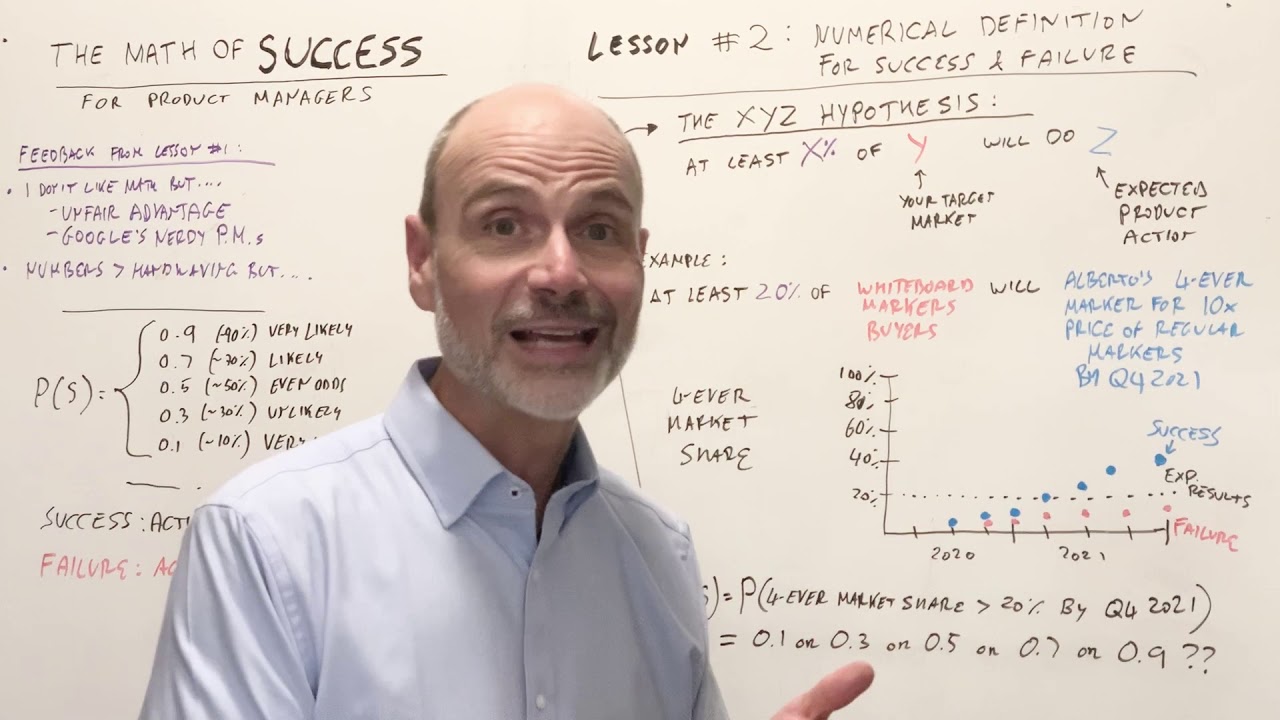 THE MATH OF SUCCESS
FOR PRODUCT MANAGERS
FEEDBACK FROM LESSON #1:
• I DON'T LIKE MATH BUT....
- UNFAIR ADVANTAGE
- GOOGLE'S NERDY P.M.s
• NUMBERS > HANDWAVING BUT....
P(S) =
0.9 (90%) VERY LIKELY
0.7 (~70%) LIKELY
0.5 (~50%) EVEN ODDS
0.3 (~30%) UNLIKELY
0.1 (~10%) VERY
SUCCESS:
FAILURE:
LESSON #2: NUMERICAL DEFINITION
FOR SUCCESS & FAILURE
THE XYZ HYPOTHESIS:
AT LEAST X% OF Y WILL DO Z
YOUR TARGET
MARKET
EXPECTED
PRODUCT
ACTION
EXAMPLE:
AT LEAST 20% OF WHITEBOARD
MARKERS
BUYERS
WILL ALBERTO'S 4-EVER
MARKER FOR 10x
PRICE OF REGULAR
MARKERS
BY Q4 2021
4-EVER
MARKET
SHARE
100%
80%
60%
40%
20%
2020 2021
SUCCESS
EXP.
RESULTS
FAILURE
S) = P(4-EVER MARKET SHARE > 20% BY Q4 2021)
= 0.1 OR 0.3 OR 0.5 OR 0.7 OR 0.9 ??